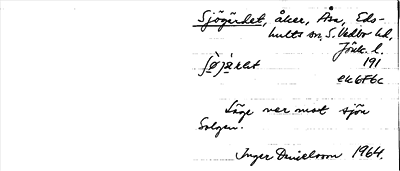 Sjögärdet, åker, Åsa, Eds-
hults sn, S. Vedbo hd,
Jönk. l.
191
ek 6F6c
Läge ner mot sjön
Solgen.
Inger Danielsson 1964.